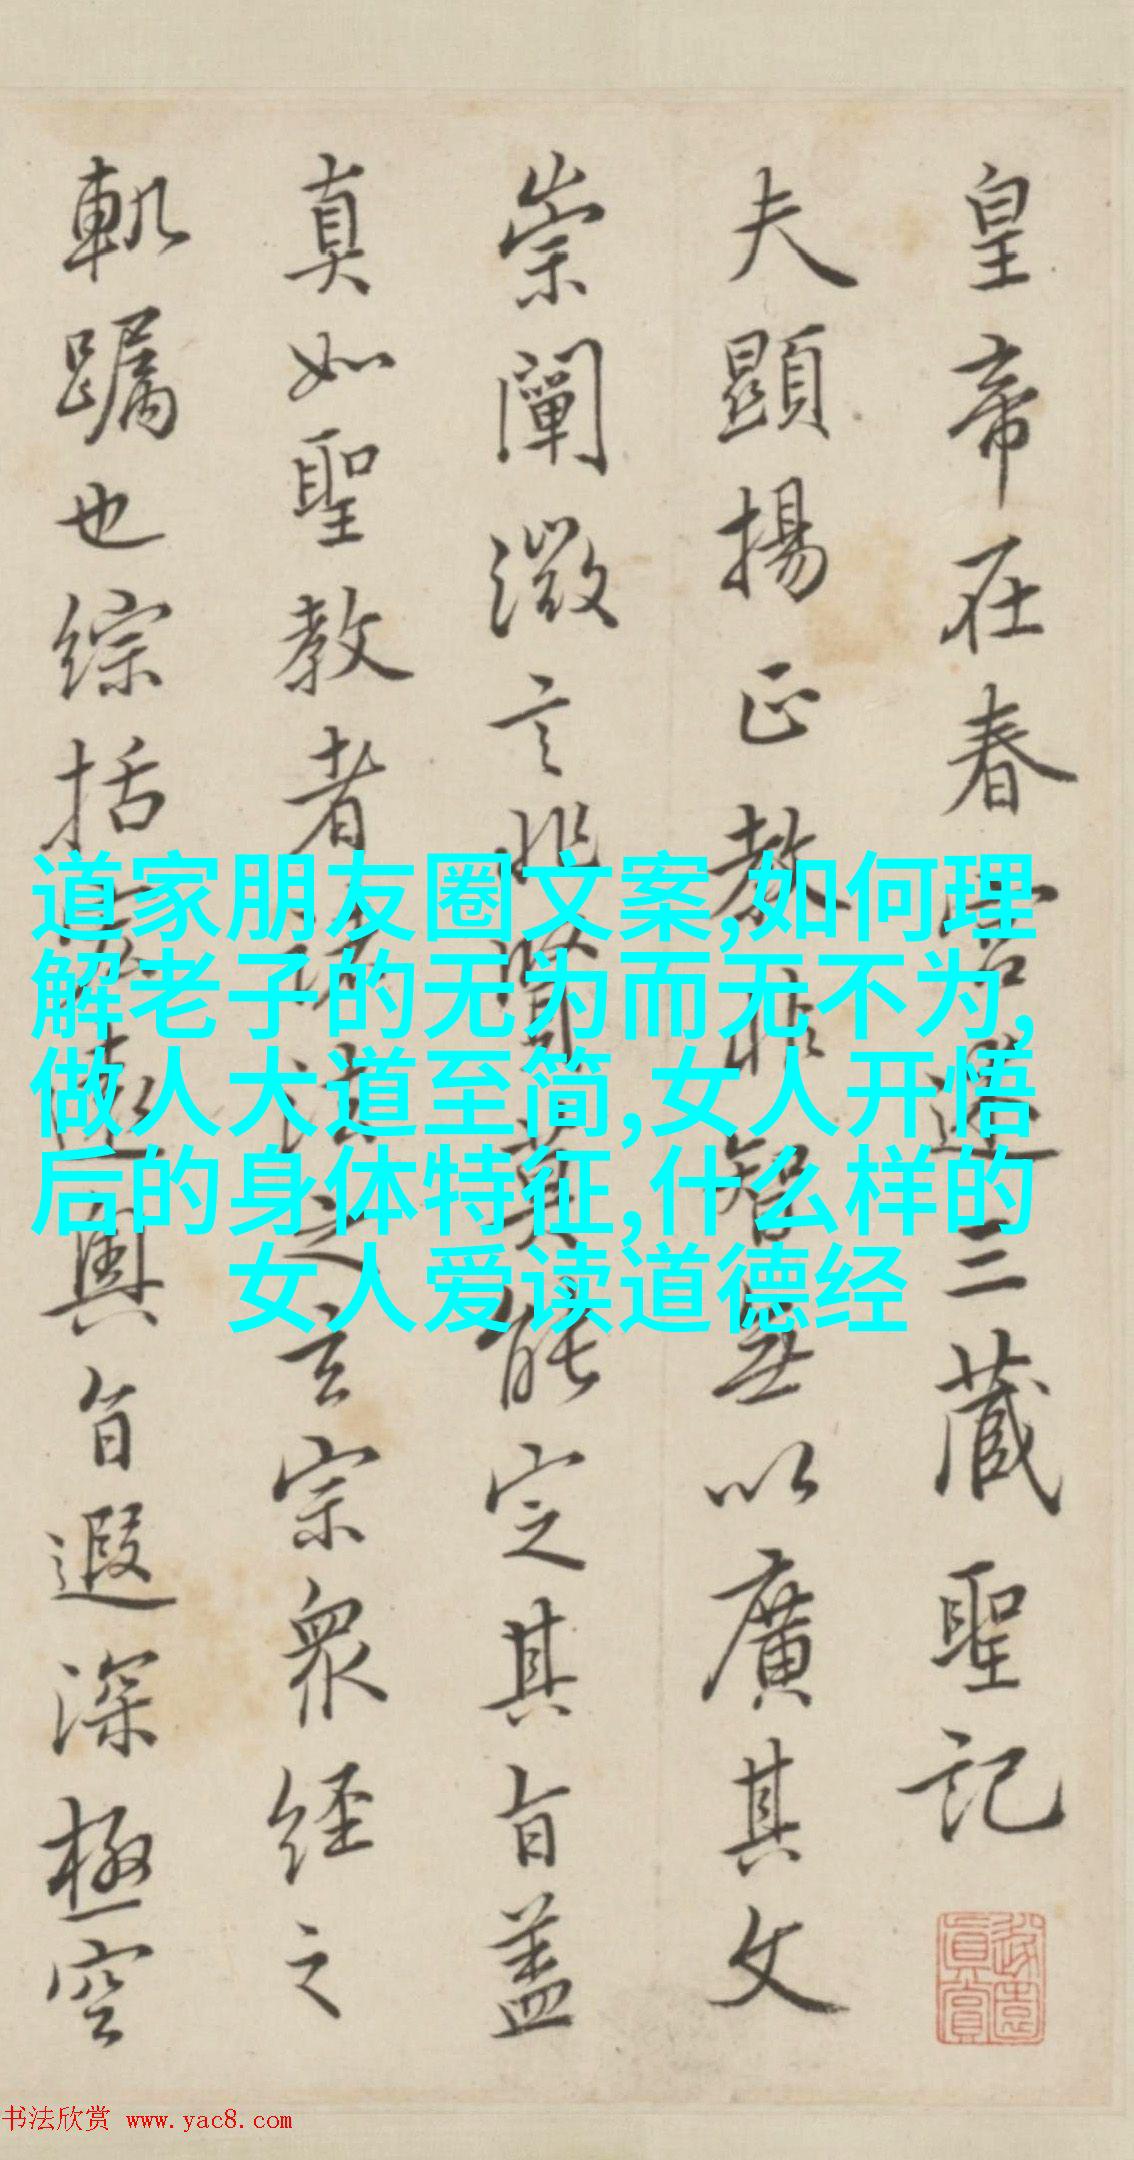 皇帝在春宮述三藏聖記
夫顯揚正教非智無以廣其文
崇闡微言非賢莫能定其旨蓋
真如聖教者諸法之玄宗眾經之
軌躅也綜括宏遠奧旨遐深極空
道家朋友圈文案,如何理
解老子的无为而无不为,
做人大道至简,女人开悟
后的身体特征,什么样的
女人爱读道德经
书法欣赏 www.yac8.com